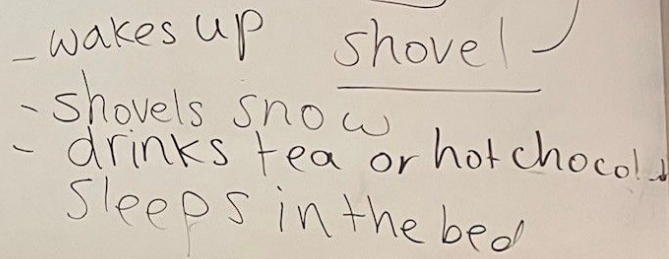 - wakes up shovel
- shovels snow
- drinks tea or hot chocol
sleeps in the bed